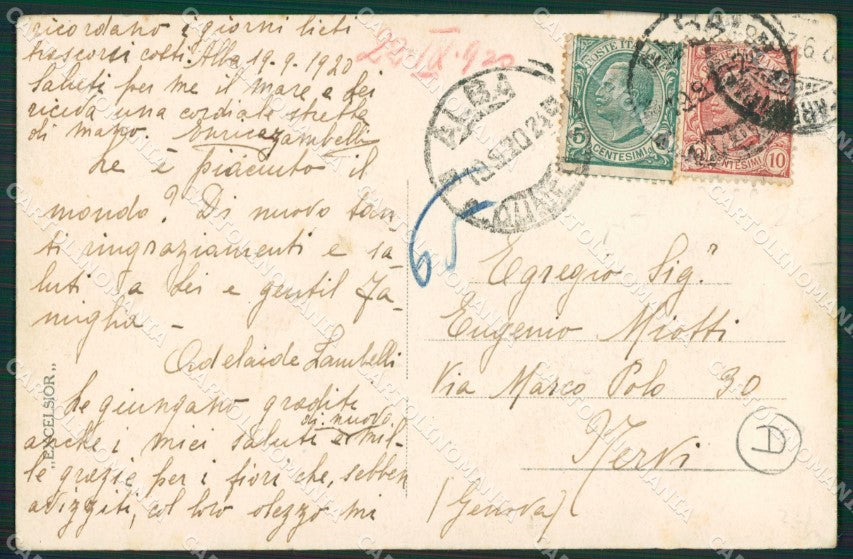 ricordano i giorni lieti
trascorsi costì. Alba 19-9-1920
Saluti per me il mare e Lei
riceva una cordiale stretta
di mano. Enrica Zambelli
Le è piaciuto il
mondo? Di nuovo tan-
ti ringraziamenti e sa-
luti a Lei e gentil Fa-
miglia -
Adelaide Zambelli
Le giungano gradite
di nuovo
anche i miei saluti e mil-
le grazie per i fiori che, sebben
avizziti, col loro olezzo mi
„EXCELSIOR„
22-IX-920
ALBA
19.9.20.24
POSTE ITALIANE
5 CENTESIMI 5
CENTESIMI 10
65
Egregio Sig.r
Eugenio Miotti
Via Marco Polo 30
Nervi
(Genova)
A
CARTOLINOMANIA